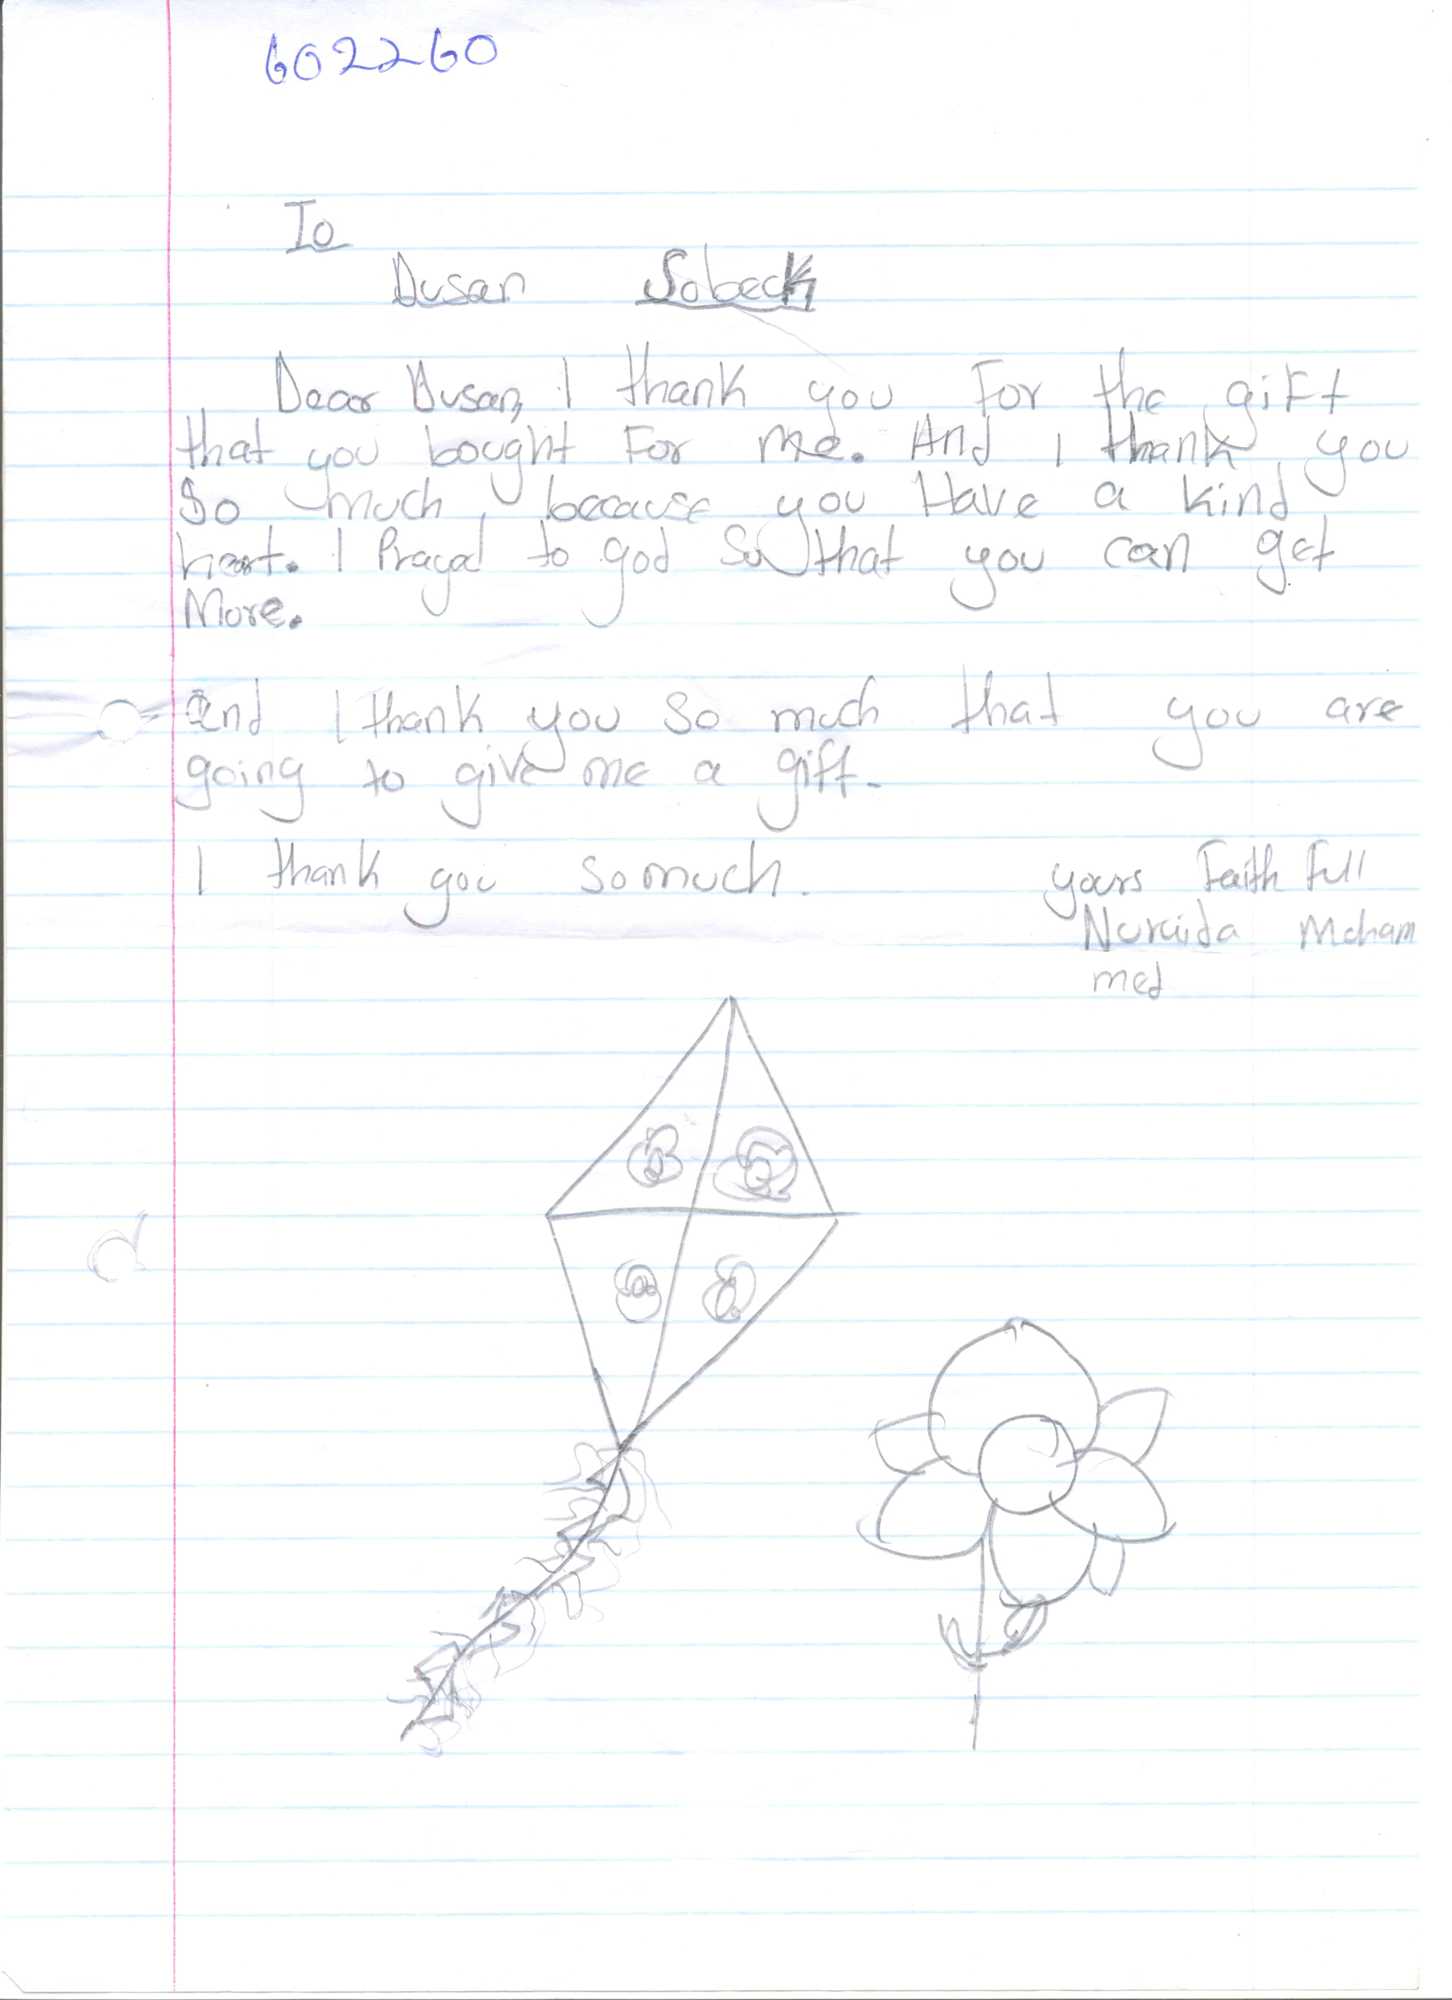 602260
To
Dusan Sobeck
Dear Dusan, I thank you For the giFt
that you bought For me. And I thank you
So much, because you Have a kind
heart. I Prayed to god so that you can get
More.
And I thank you so much that you are
going to give me a gift.
I thank you somuch.
yours Faith Full
Mcham
med